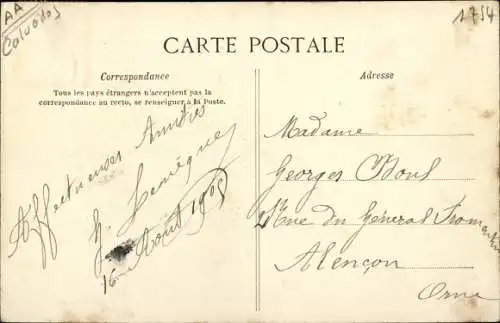 AA
Calvados
1754
CARTE POSTALE
Correspondance
Tous les pays étrangers n'acceptent pas la
correspondance au recto, se renseigner à la Poste.
Affectueuses Amitiés
16 Août 1905
Adresse
Madame
Georges
Rue du Général Fromentin
Alençon
Orne